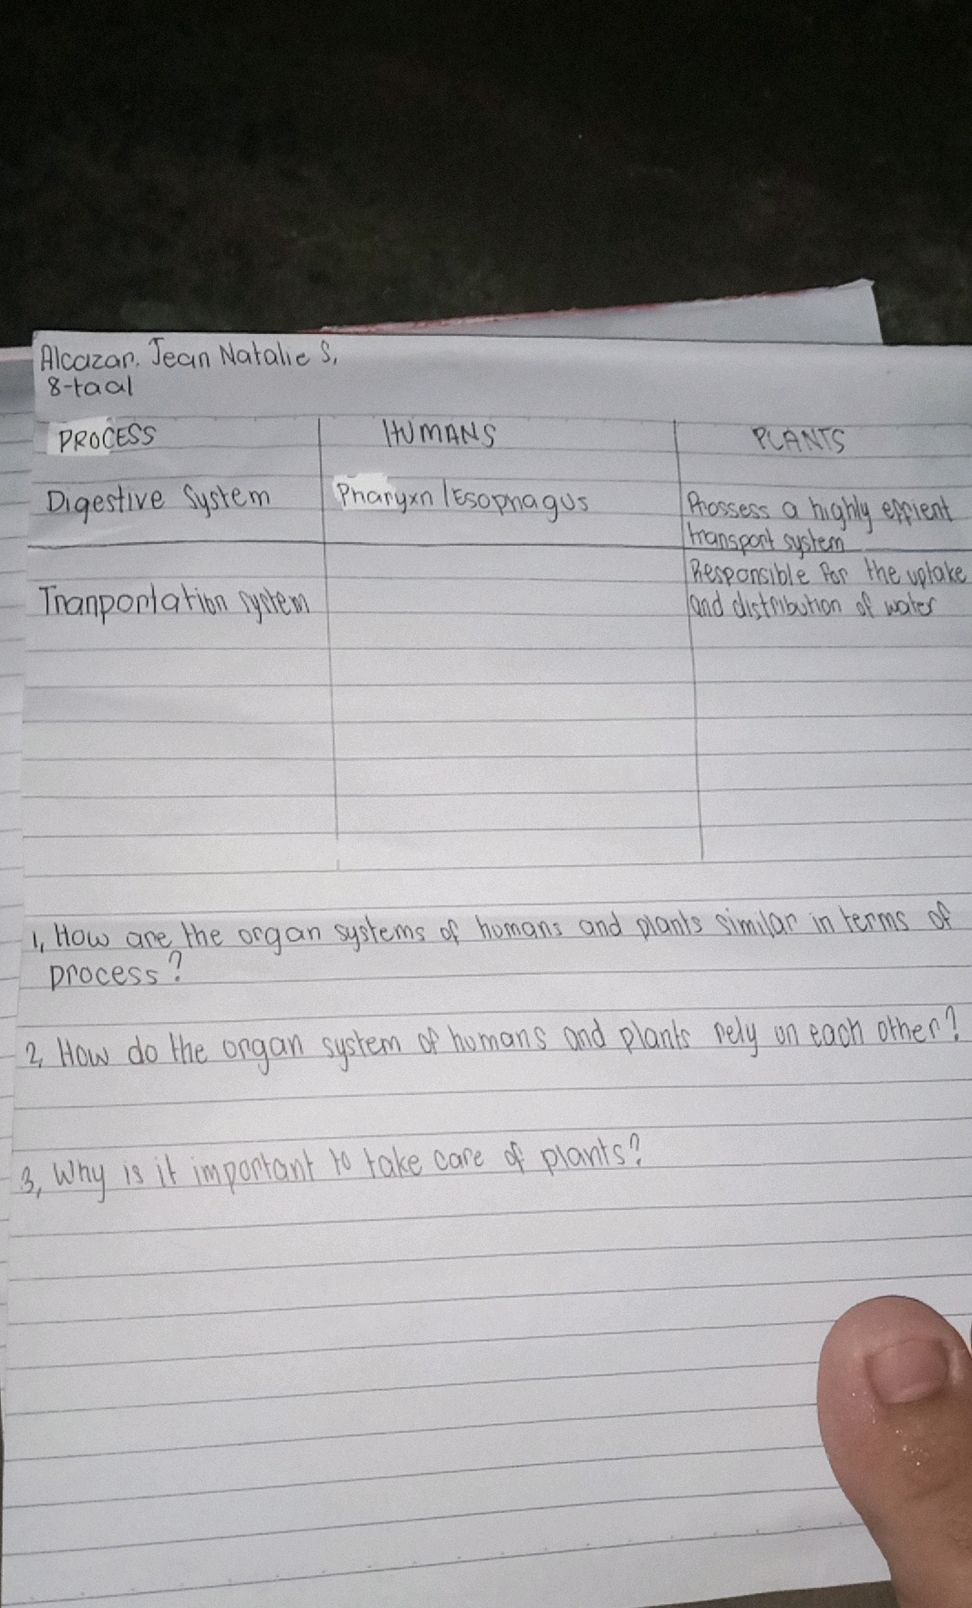 Alcazar, Jean Natalie S,
8-taal
PROCESS HUMANS PLANTS
Digestive System Pharyxn/Esophagus Prossess a highly effient
transport system
Responsible for the uptake
Tranportation system and distribution of water
1, How are the organ systems of humans and plants similar in terms of
process?
2, How do the organ system of humans and plants rely on each other?
3, Why is it important to take care of plants?